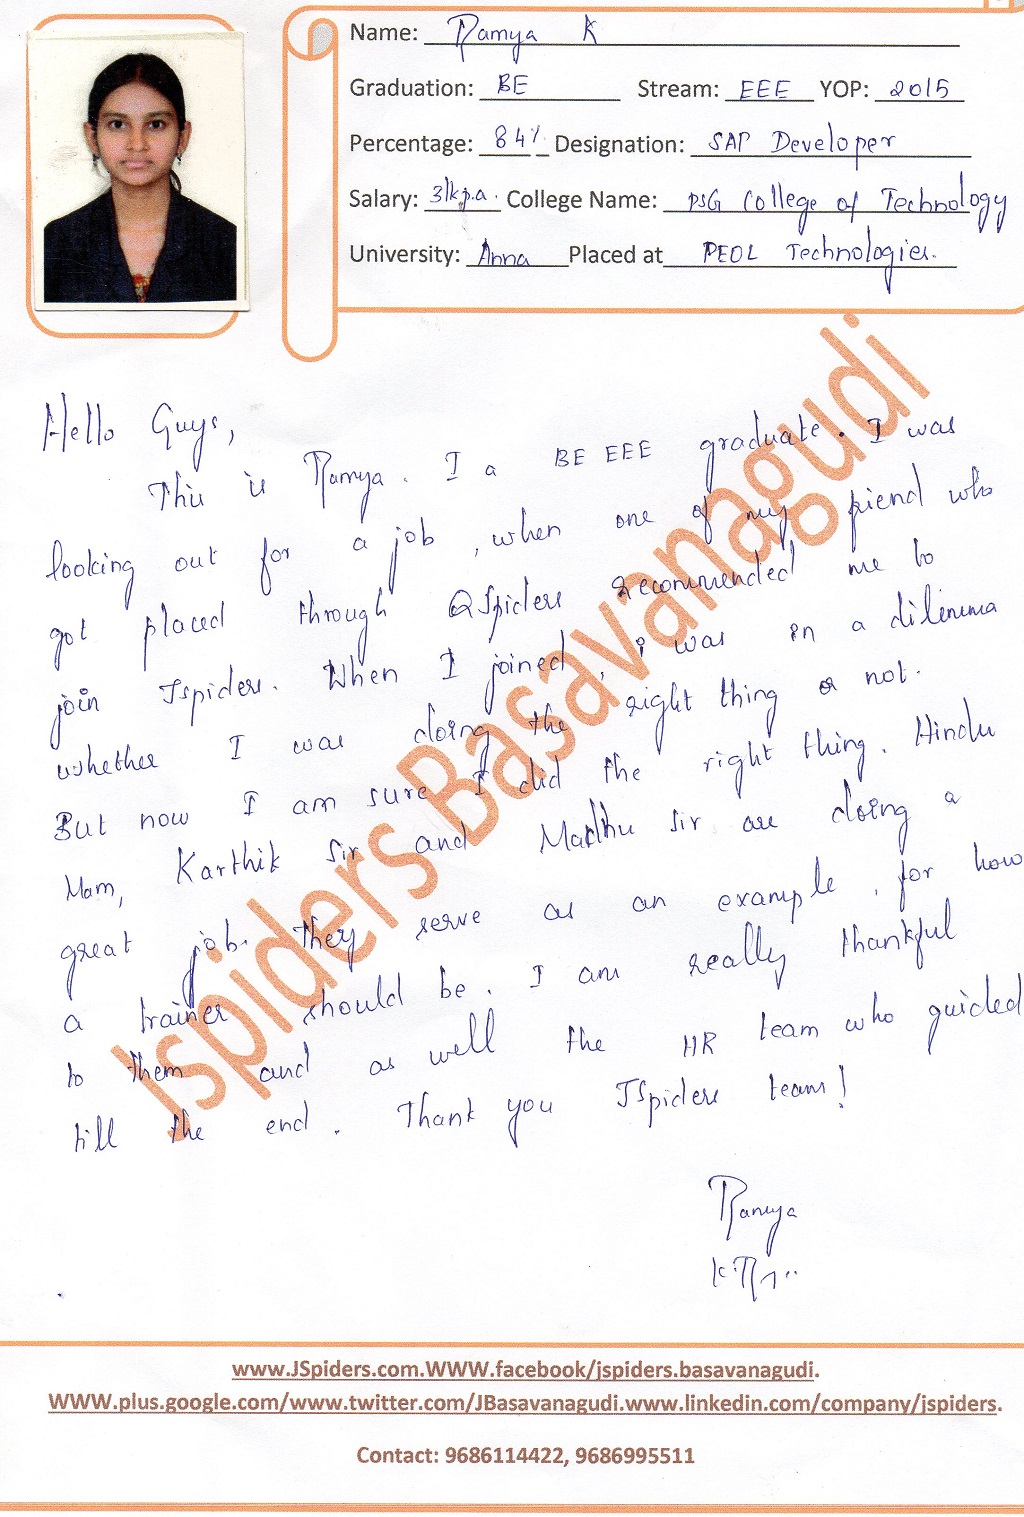 Name: Ramya K
Graduation: BE Stream: EEE YOP: 2015
Percentage: 84% Designation: SAP Developer
Salary: 3lkp.a. College Name: PSG College of Technology
University: Anna Placed at PEOL Technologies.
Hello Guys,
This is Ramya. I a BE EEE graduate. I was
looking out for a job, when one of my friend who
got placed through QSpiders recommended me to
join Jspiders. When I joined, i was in a dilemma
whether I was doing the right thing or not.
But now I am sure I did the right thing. Hindu
Mam, Karthik Sir and Madhu Sir are doing a
great job. They serve as an example, for how
a trainer should be. I am really thankful
to them and as well the HR team who guided
till the end. Thank you JSpiders team!
Ramya
Jspiders Basavanagudi
www.JSpiders.com.WWW.facebook/jspiders.basavanagudi.
WWW.plus.google.com/www.twitter.com/JBasavanagudi.www.linkedin.com/company/jspiders.
Contact: 9686114422, 9686995511